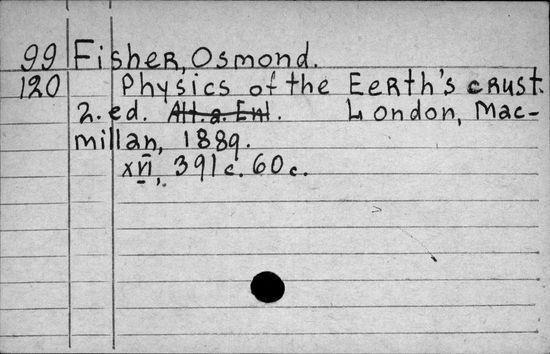 99 Fisher, Osmond.
120 Physics of the Eerth's crust.
2. ed. Alt. a. Enl. London, Mac-
millan, 1889.
XVI, 391 c. 60 c.